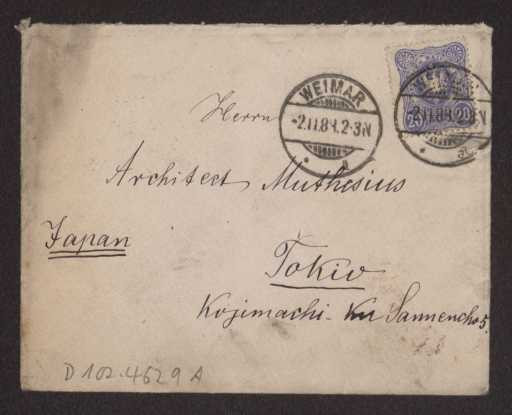 WEIMAR
-2.11.8 1.2-3N
Herrn
Architect Muthesius
Japan
Tokio
Kojimachi- Ku Sannencho 5.
D 102-4629 A